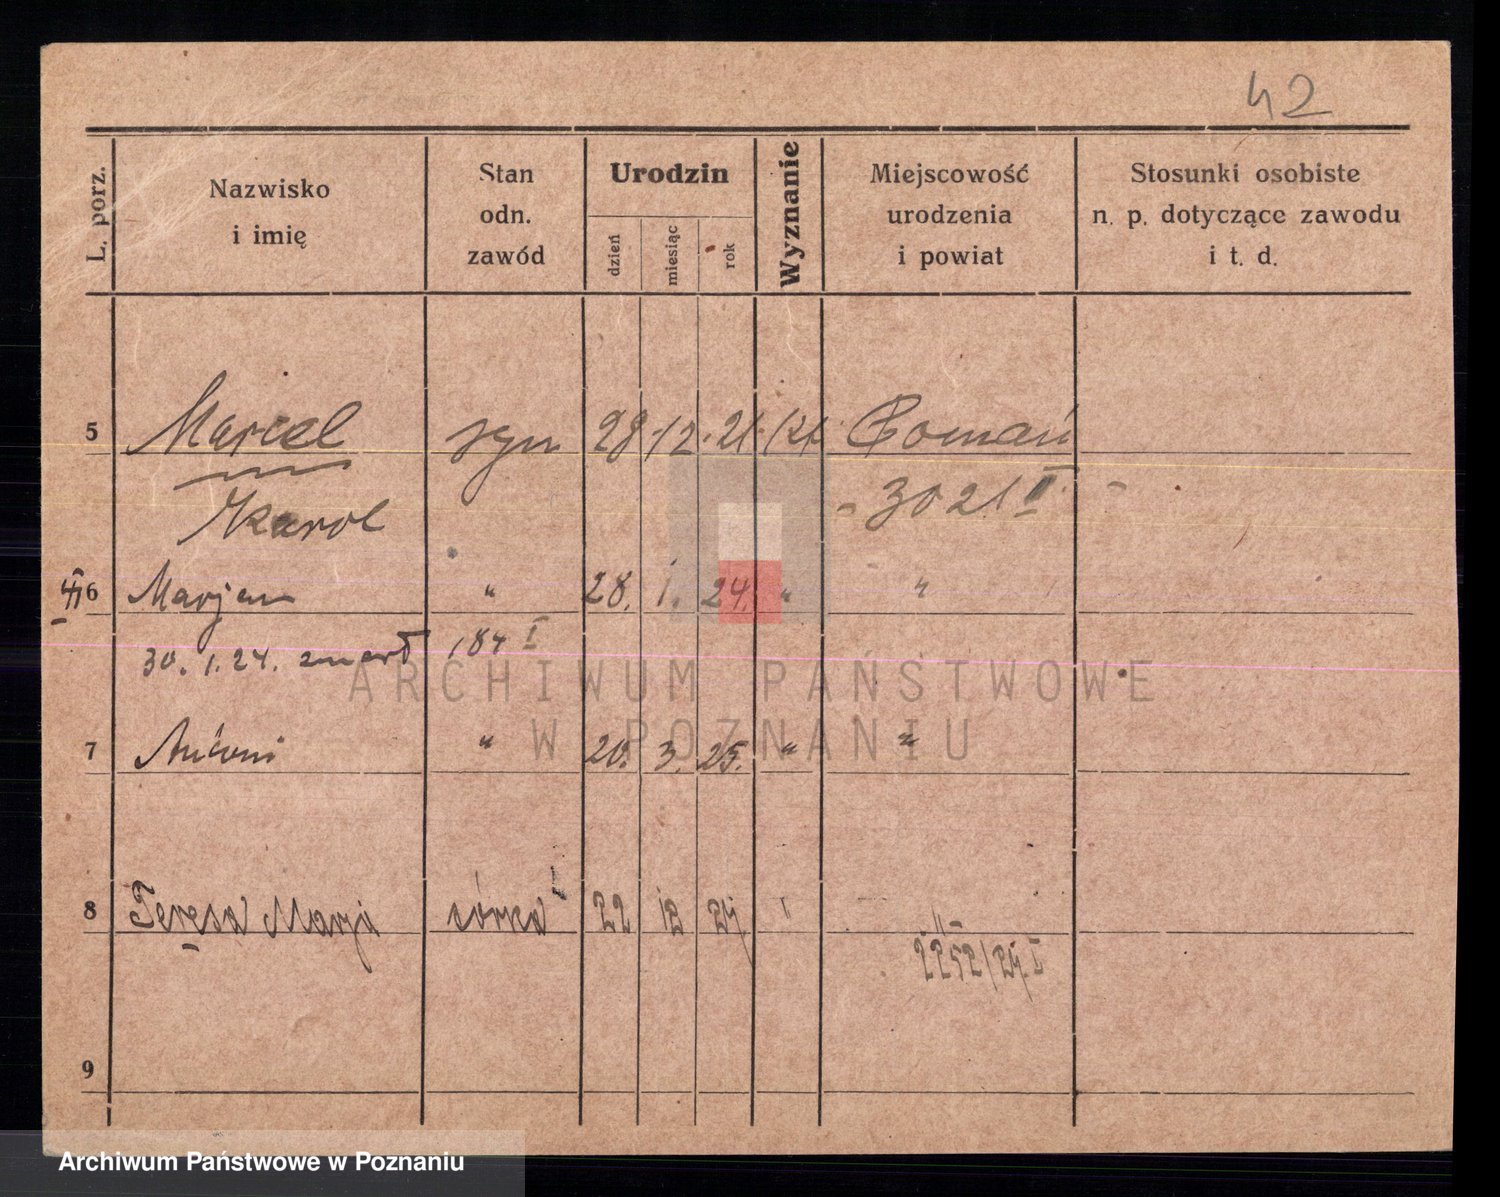 42
L. porz. Nazwisko i imię Stan odn. zawód Urodzin dzień miesiąc rok Wyznanie Miejscowość urodzenia i powiat Stosunki osobiste n. p. dotyczące zawodu i t. d.
5 Marcel syn 28 12. 21. kt Poznań
Karol 3021 II
6 Marjan " 28. 1. 24. " "
30. 1. 24. zmarł 184 I
7 Antoni " 20. 3. 25. " "
8 Teresa Marja córka 22 12 27 " "
2252/27 I
9
ARCHIWUM PAŃSTWOWE
W POZNANIU
Archiwum Państwowe w Poznaniu